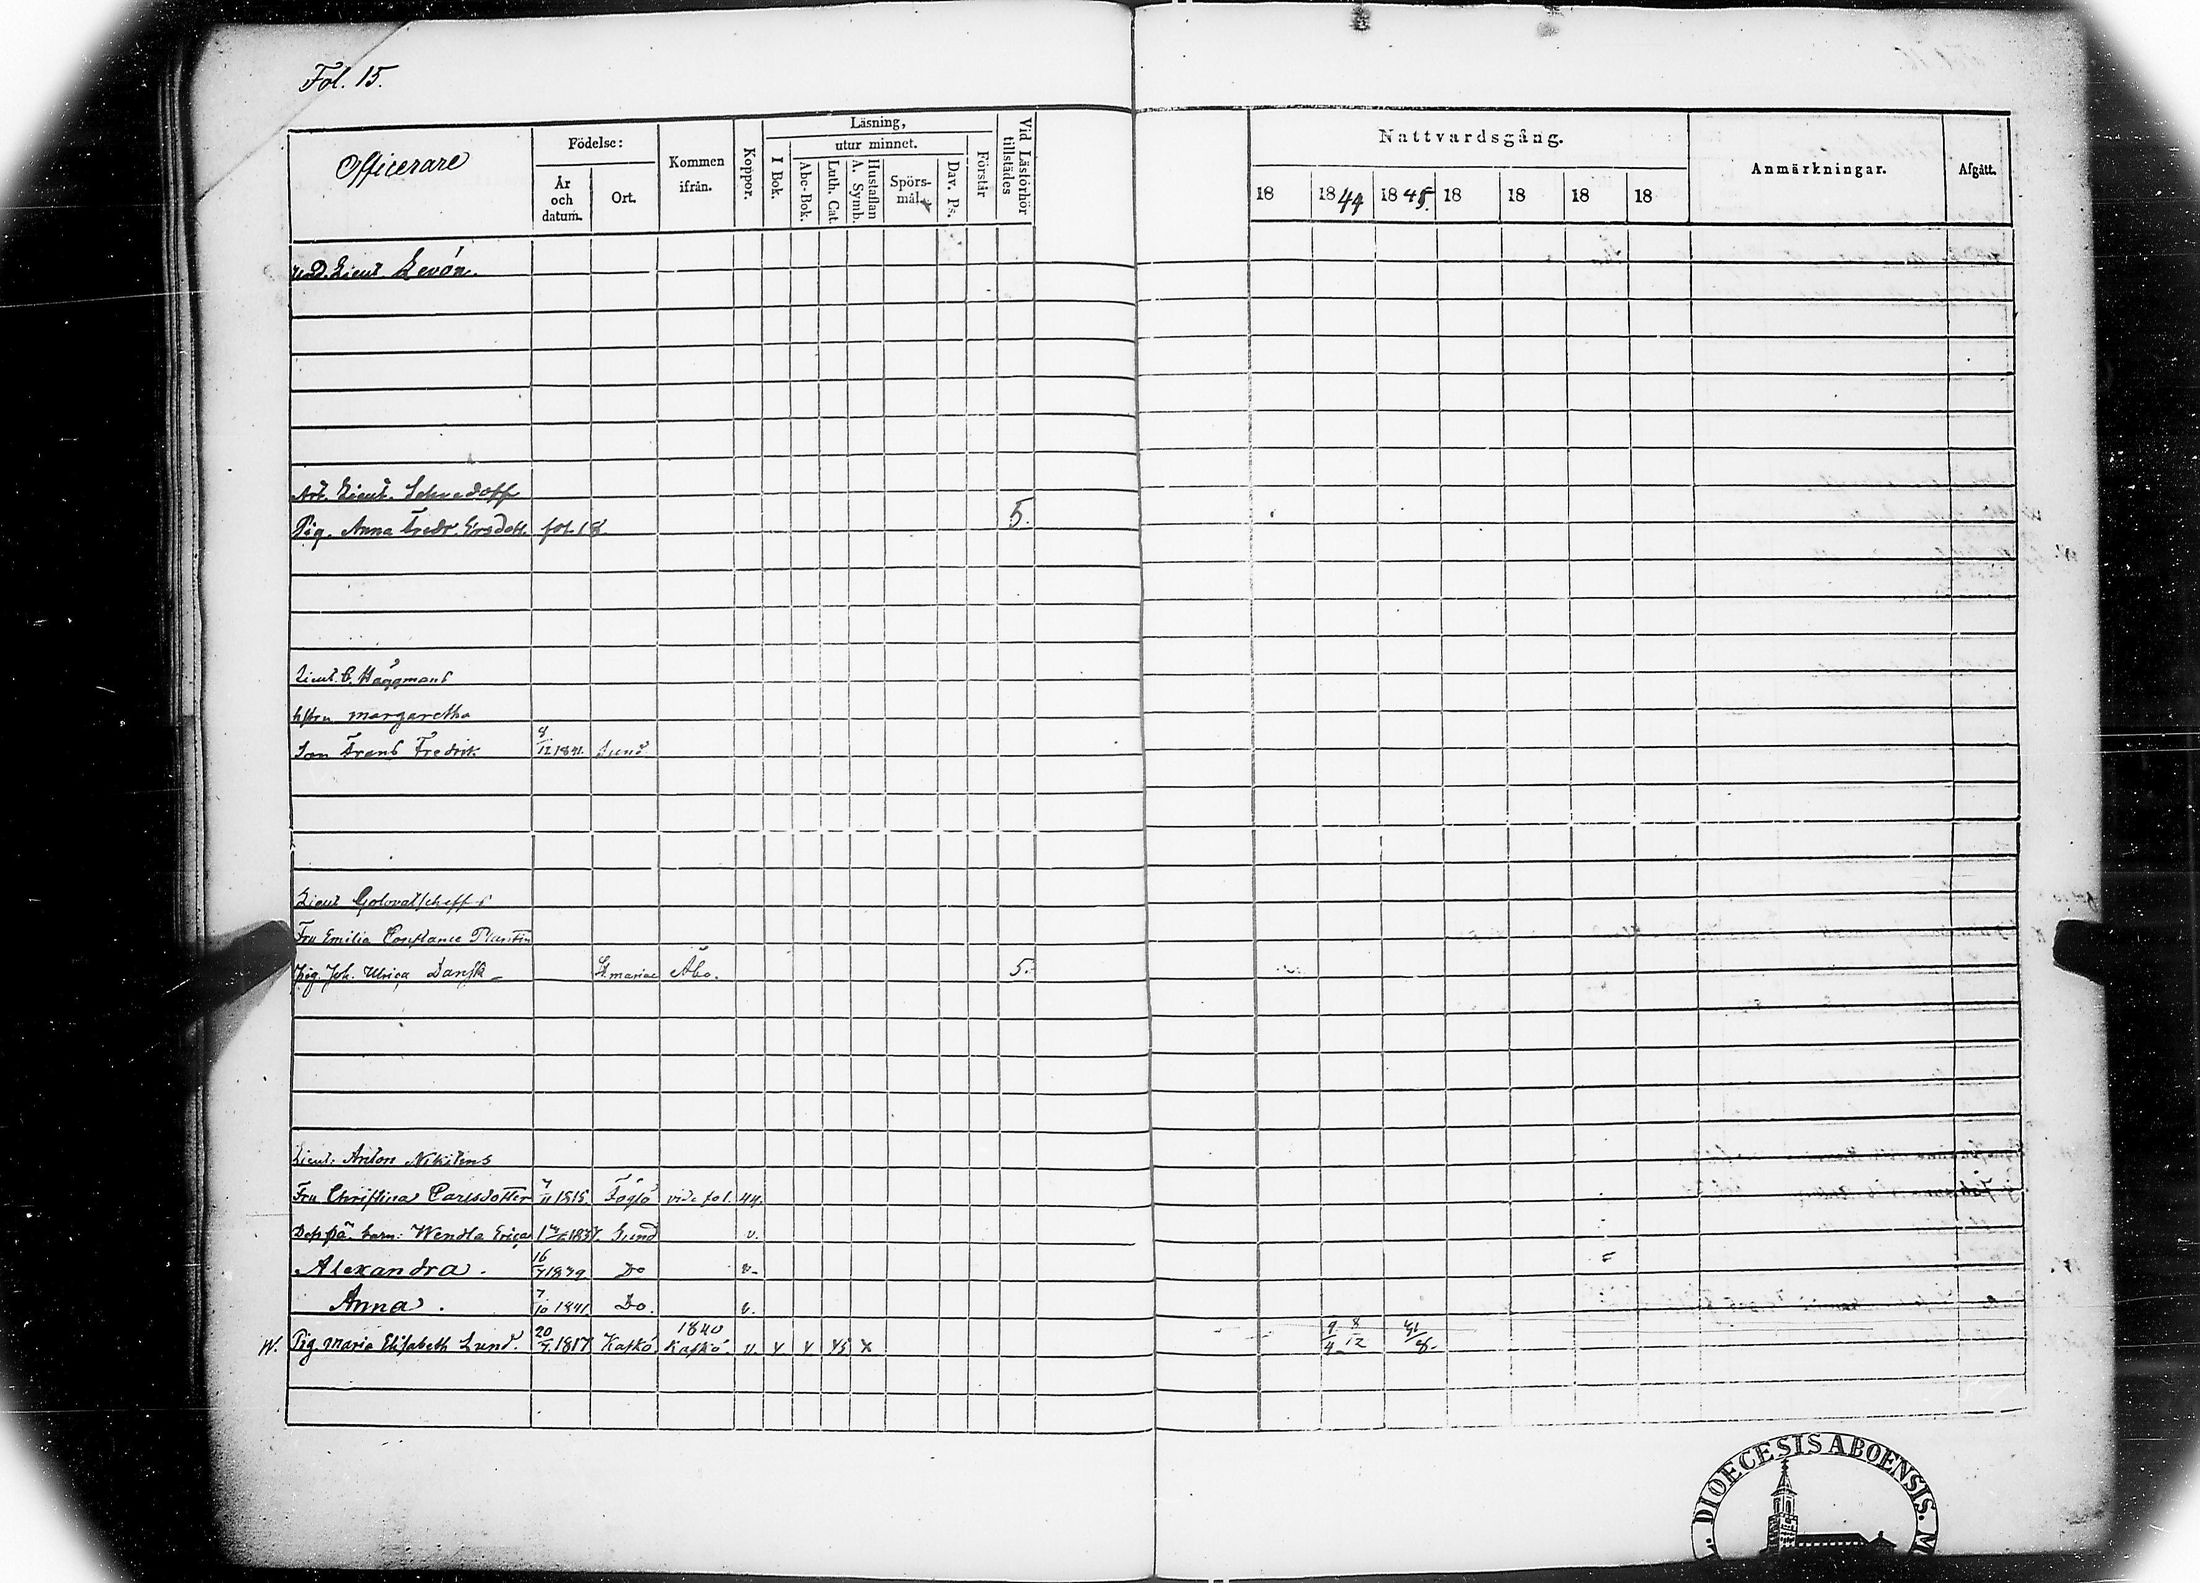 Fol. 15.
Officerare
Födelse:
År och datum.
Ort.
Kommen ifrån.
Koppor.
Läsning,
I Bok.
utur minnet.
Abc-Bok.
Luth. Cat.
Hustaflan A. Symb.
Spörsmål.
Dav. Ps.
Förstår
Vid Läsförhör tillstädes
Nattvardsgång.
18 1844 1845. 18 18 18 18
Anmärkningar.
Afgått.
Lieut
Art. Lieut. Schvedoff
Pig. Anna Fredr. Ersdott. fol. 18 5.
Lieut. C. Häggmans
Hstru Margaretha
Son Frans Fredrik 8/12 1841. Sund
Lieut Golovatscheffs
Fru Emilia Constance Plantin
Pig. Joh. Ulrica Dansk St. Mariae Åbo. 5.
Lieut: Anton Nikitins
Fru Christina Carlsdotter 7/11 1815. Föglö vide fol. 44.
barn: Wendla Erica Sund v.
Alexandra. 16/7 1839 Do v.
Anna. 7/10 1841. Do. v.
W. Pig. Maria Elisabeth Lund. 20/7 1817 Kafkö 1840 Kafkö. v. 9/4 8/12
DIOECESIS ABOENSIS. M